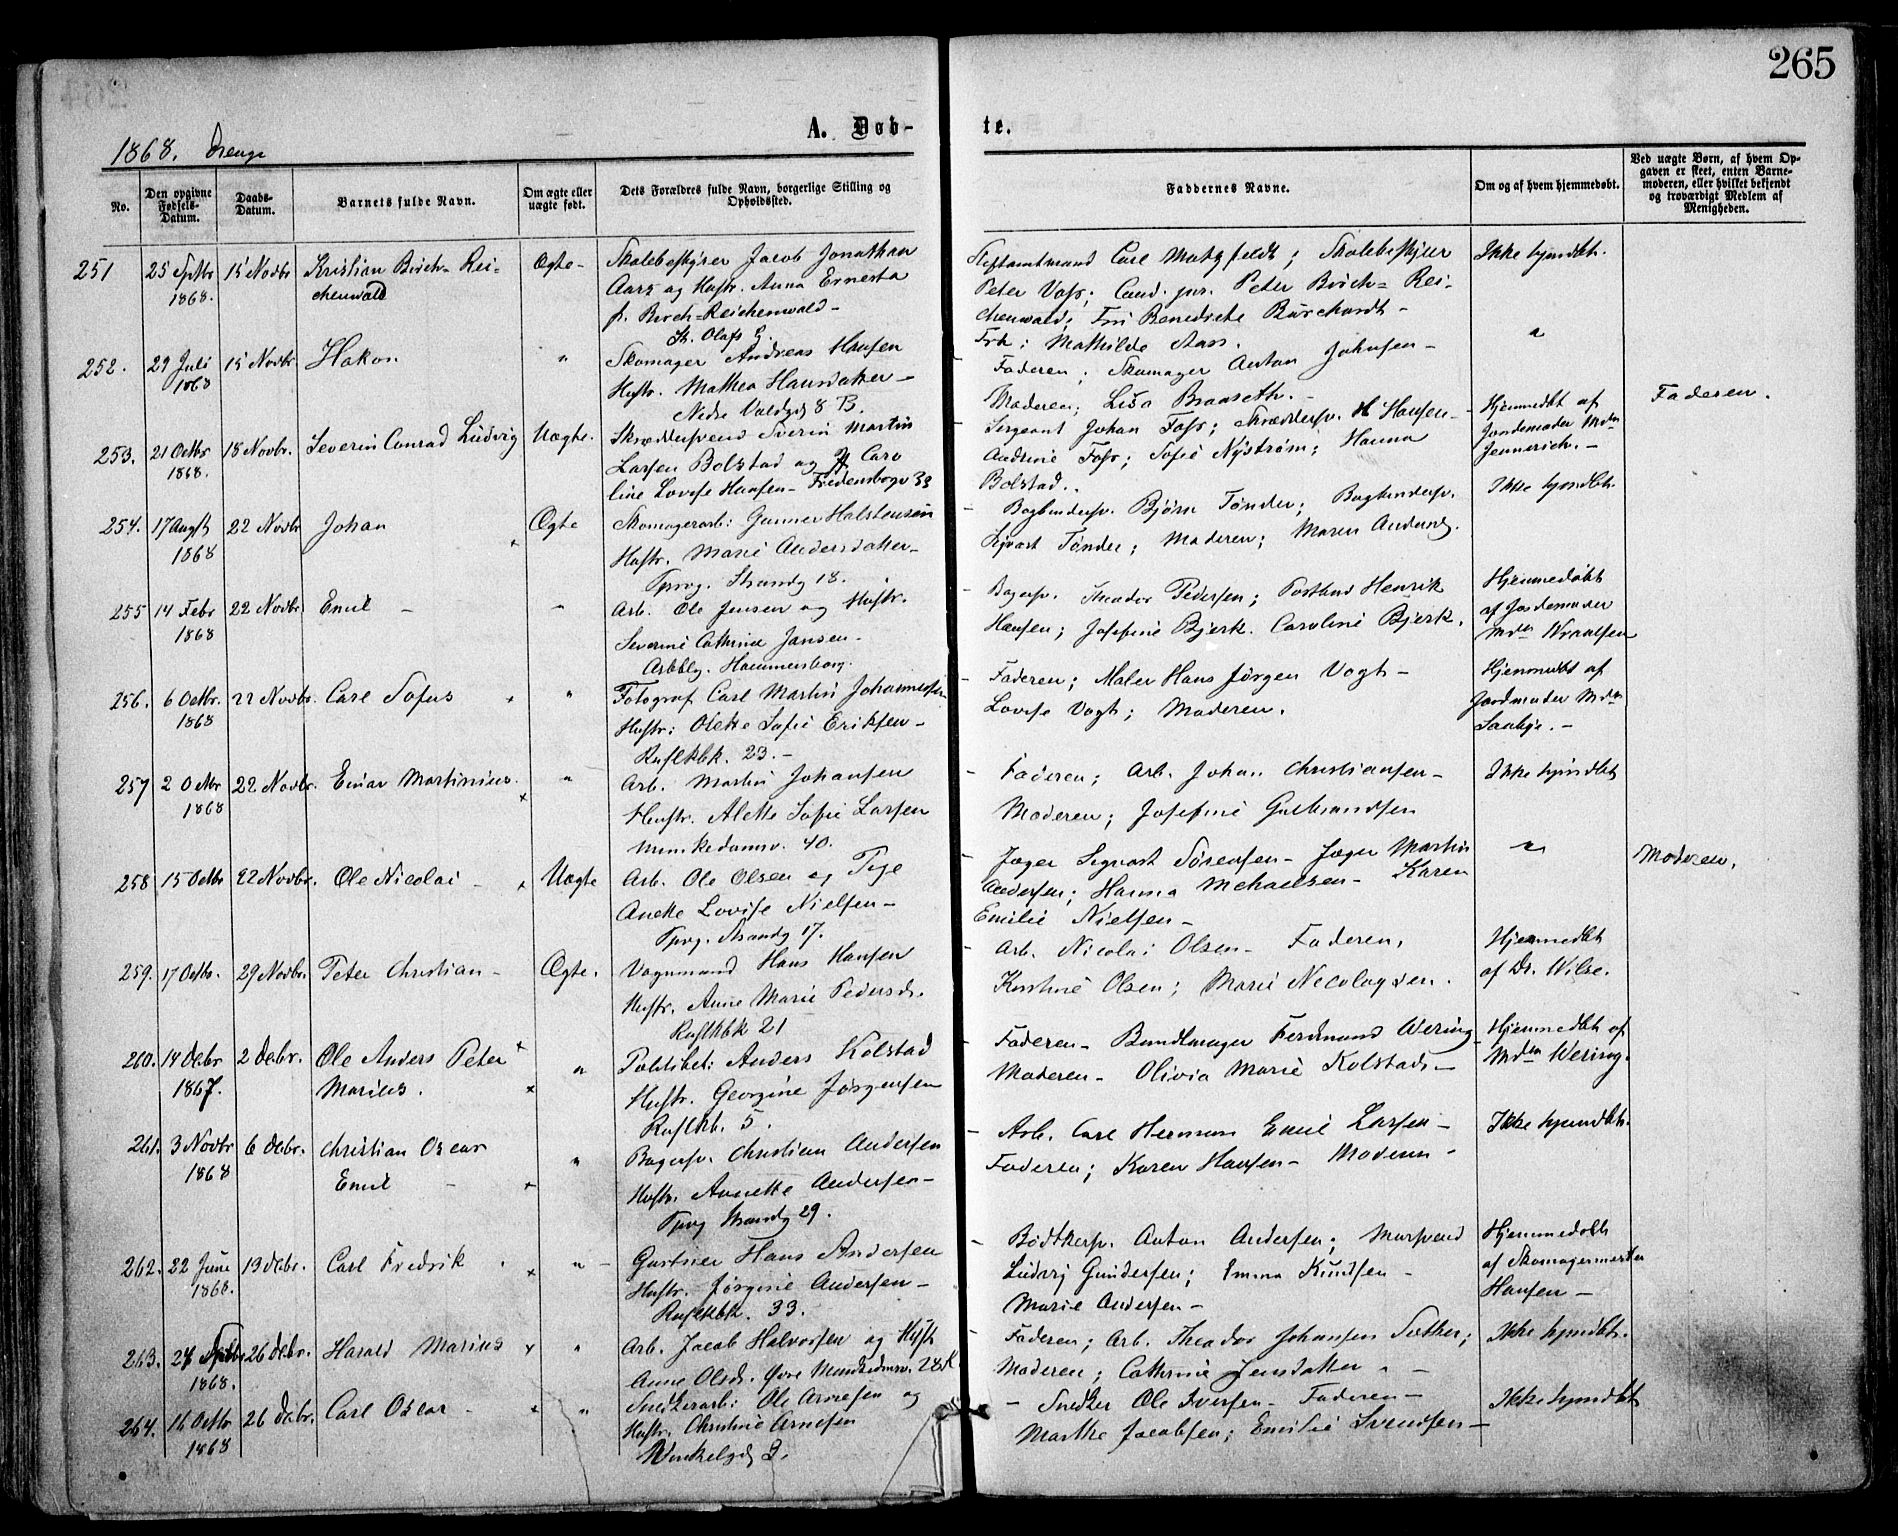 265
A. Døb-
te.
1868. Drenge
No.
Den opgivne Fødsels-Datum.
Daabs-Datum.
Barnets fulde Navn.
Om ægte eller uægte født.
Dets Forældres fulde Navn, borgerlige Stilling og Opholdssted.
Faddernes Navne.
Om og af hvem hjemmedøbt.
Ved uægte Børn, af hvem Op-
gaven er skeet, enten Barne-
moderen, eller hvilket bekjendt
og troværdigt Medlem af
Menigheden.
251 25 Sptbr 15 Novbr Kristian Birch-Rei- Ægte- Skolebestyrer Jacob Jonathan
1868. chenwald Aars og Hustr. Anna Ernesta
f. Birch-Reichenwald-
St. Olafs G.
Stiftamtmand Carl Motzfeldt; Skolebestyrer Ikke hjmdbt.
Peter Voss; Cand. jur. Peter Birch-Rei-
chenwald; Benedicte Burchardt-
Frk: Mathilde Aass.
252. 29 Juli 15 Novbr. Hakon " Skomager Andreas Hansen
1868 Hustr. Mathea Hansdatter-
Nedre Voldgd 8 B.
Faderen; Skomager Anton Johnsen- "
Moderen; Lisa Braaseth.-
253. 21 Octbr 18 Novbr. Severin Conrad Ludvig Uægte. Skræddersvend Sverin Martin
1868. Larsen Bolstad og Caro
line Lovise Hansen- Fredensborgv 33
Sergeant Johan Foss; Skræddersv. H Hansen- Hjemmedbt af Faderen.
Andrine Foss; Sofie Nystrøm; Hanna Jordemoder Mdm
Bolstad. Jennerich.-
254. 17 Augst 22 Novbr Johan Ægte Skomagerarb: Gunner Halstensen
1868 Hustr. Marie Andersdatter-
Tprvg. Strandg 18.
- Bogbindersv. Bjørn Tønder; Bogbindersv. Ikke hjmdbt.
Sigvart Tønder; Moderen; Maren Andersd.
255 14 Febr 22 Novbr. Emil - " Arb. Ole Jensen og Hustr.
1868 Severine Cathrine Jansen-
Arbblg. Hammersborg.
- Bagersv. Theodor Pedersen; Postbud Henrik Hjemmedøbt
Hansen; Josefine Bjerk. Caroline Bjerk. af Jordemoder
Mdm
256. 6 Octbr. 22 Novbr. Carl Sofus " Fotograf Carl Martin Johannessen
1868 Hustr: Olette Sofie Eriksen-
Ruslkbk. 23.-
- Faderen; Maler Hans Jørgen Vogt- Hjemmedbt af
Lovise Vogt; Moderen. Jordmoder Mdm
257 2 Octbr 22 Novbr. Einar Martinius. " Arb. Martin Johansen
1868 Hustr. Alette Sofie Larsen
Munkedamsv. 40.
- Faderen; Arb. Johan Christiansen- Ikke hjmdbt
Moderen; Josefine Gulbrandsen
258 15 Octbr 22 Novbr. Ole Nicolai - Uægte Arb. Ole Olsen og Pige
Anette Lovise Nielsen-
Tprvg. Strandg 17.
Jæger Sigvart Sørensen- Jæger Martin " Moderen.
Andersen; Hanna Mchaelsen- Karen
Emilie Nielsen-
259. 17 Octbr. 29 Novbr. Peter Christian- Ægte. Vognmand Hans Hansen
Hustr. Anne Marie Pedersd.
Ruslkbk 21
- Arb. Nicolai Olsen- Faderen, Hjemmedbt
Kirstine Olsen; Marie Nicolaysen. af Dr. Wilse.
260. 14 Debr 2 Debr. Ole Anders Peter " Politibet: Anders Kolstad
1867. Marius. Hustr. Georgine Jørgensen
Ruslkb. 5.
Faderen- Bundtmager Ferdinand Wering- Hjemmedbt af
Moderen- Olivia Marie Kolstad- Mdm Wering.
261. 3 Novbr 6 Debr. Christian Oscar " Bagersv. Christian Andersen
1868 Emil - Hustr. Annette Andersen-
Tprvg Strandg 29.
- Arb. Carl Herman Emil Larsen- Ikke hjemdbt.
Faderen; Karen Hansen- Moderen-
262. 22 Juni 13 Debr. Carl Fredrik " Gartner Hans Andersen
1868. Hustr. Jørgine Andersen-
Ruslkbk. 33.
- Bødtkersv. Anton Andersen; Hjemmedøbt
Ludvig Gundersen; Emma Knudsen- af Skomagermester
Marie Andersen- Hansen-
263. 26 Debr. Harald Marius " Arb. Jacob Halvorsen og Hustr
1868. Anne Olsd. Øvre Munkedmsv. 28
- Faderen; Arb. Theodor Johansen Sæther; Ikke hjmdbt.
Moderen; Cathrine Jensdatter.
264. 16 Octbr 26 Debr. Carl Oscar - " Snedkerarb: Ole Arnesen og
1868 Hustr. Christine Arnesen
Winkelgd 3.
- Snedker Ole Iversen- Faderen- Ikke hjmdbt
Marthe Jacobsen; Emilie Svendsen-